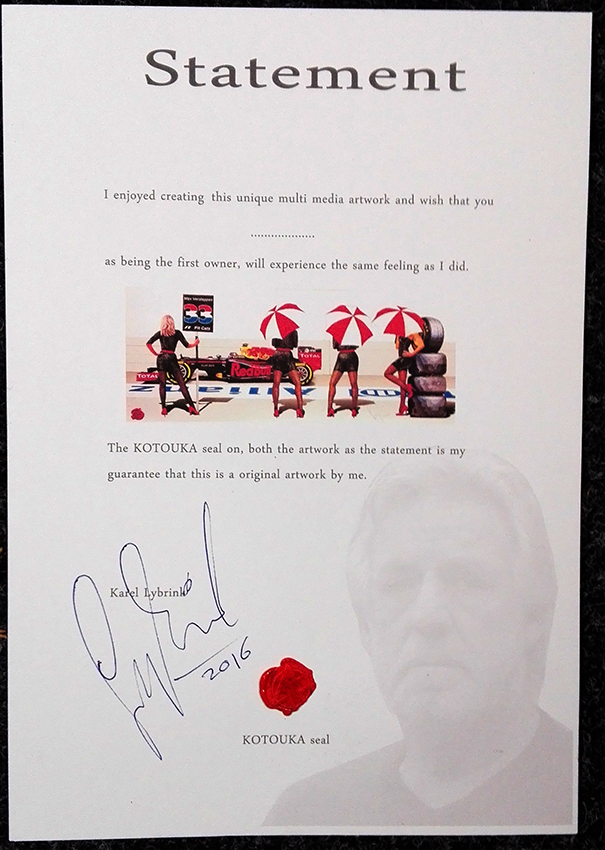 Statement
I enjoyed creating this unique multi media artwork and wish that you
...................
as being the first owner, will experience the same feeling as I did.
33
Pit Cats
TOTAL
Red Bull
TOTAL
The KOTOUKA seal on, both the artwork as the statement is my
guarantee that this is a original artwork by me.
Karel Lybrink
2016
KOTOUKA seal